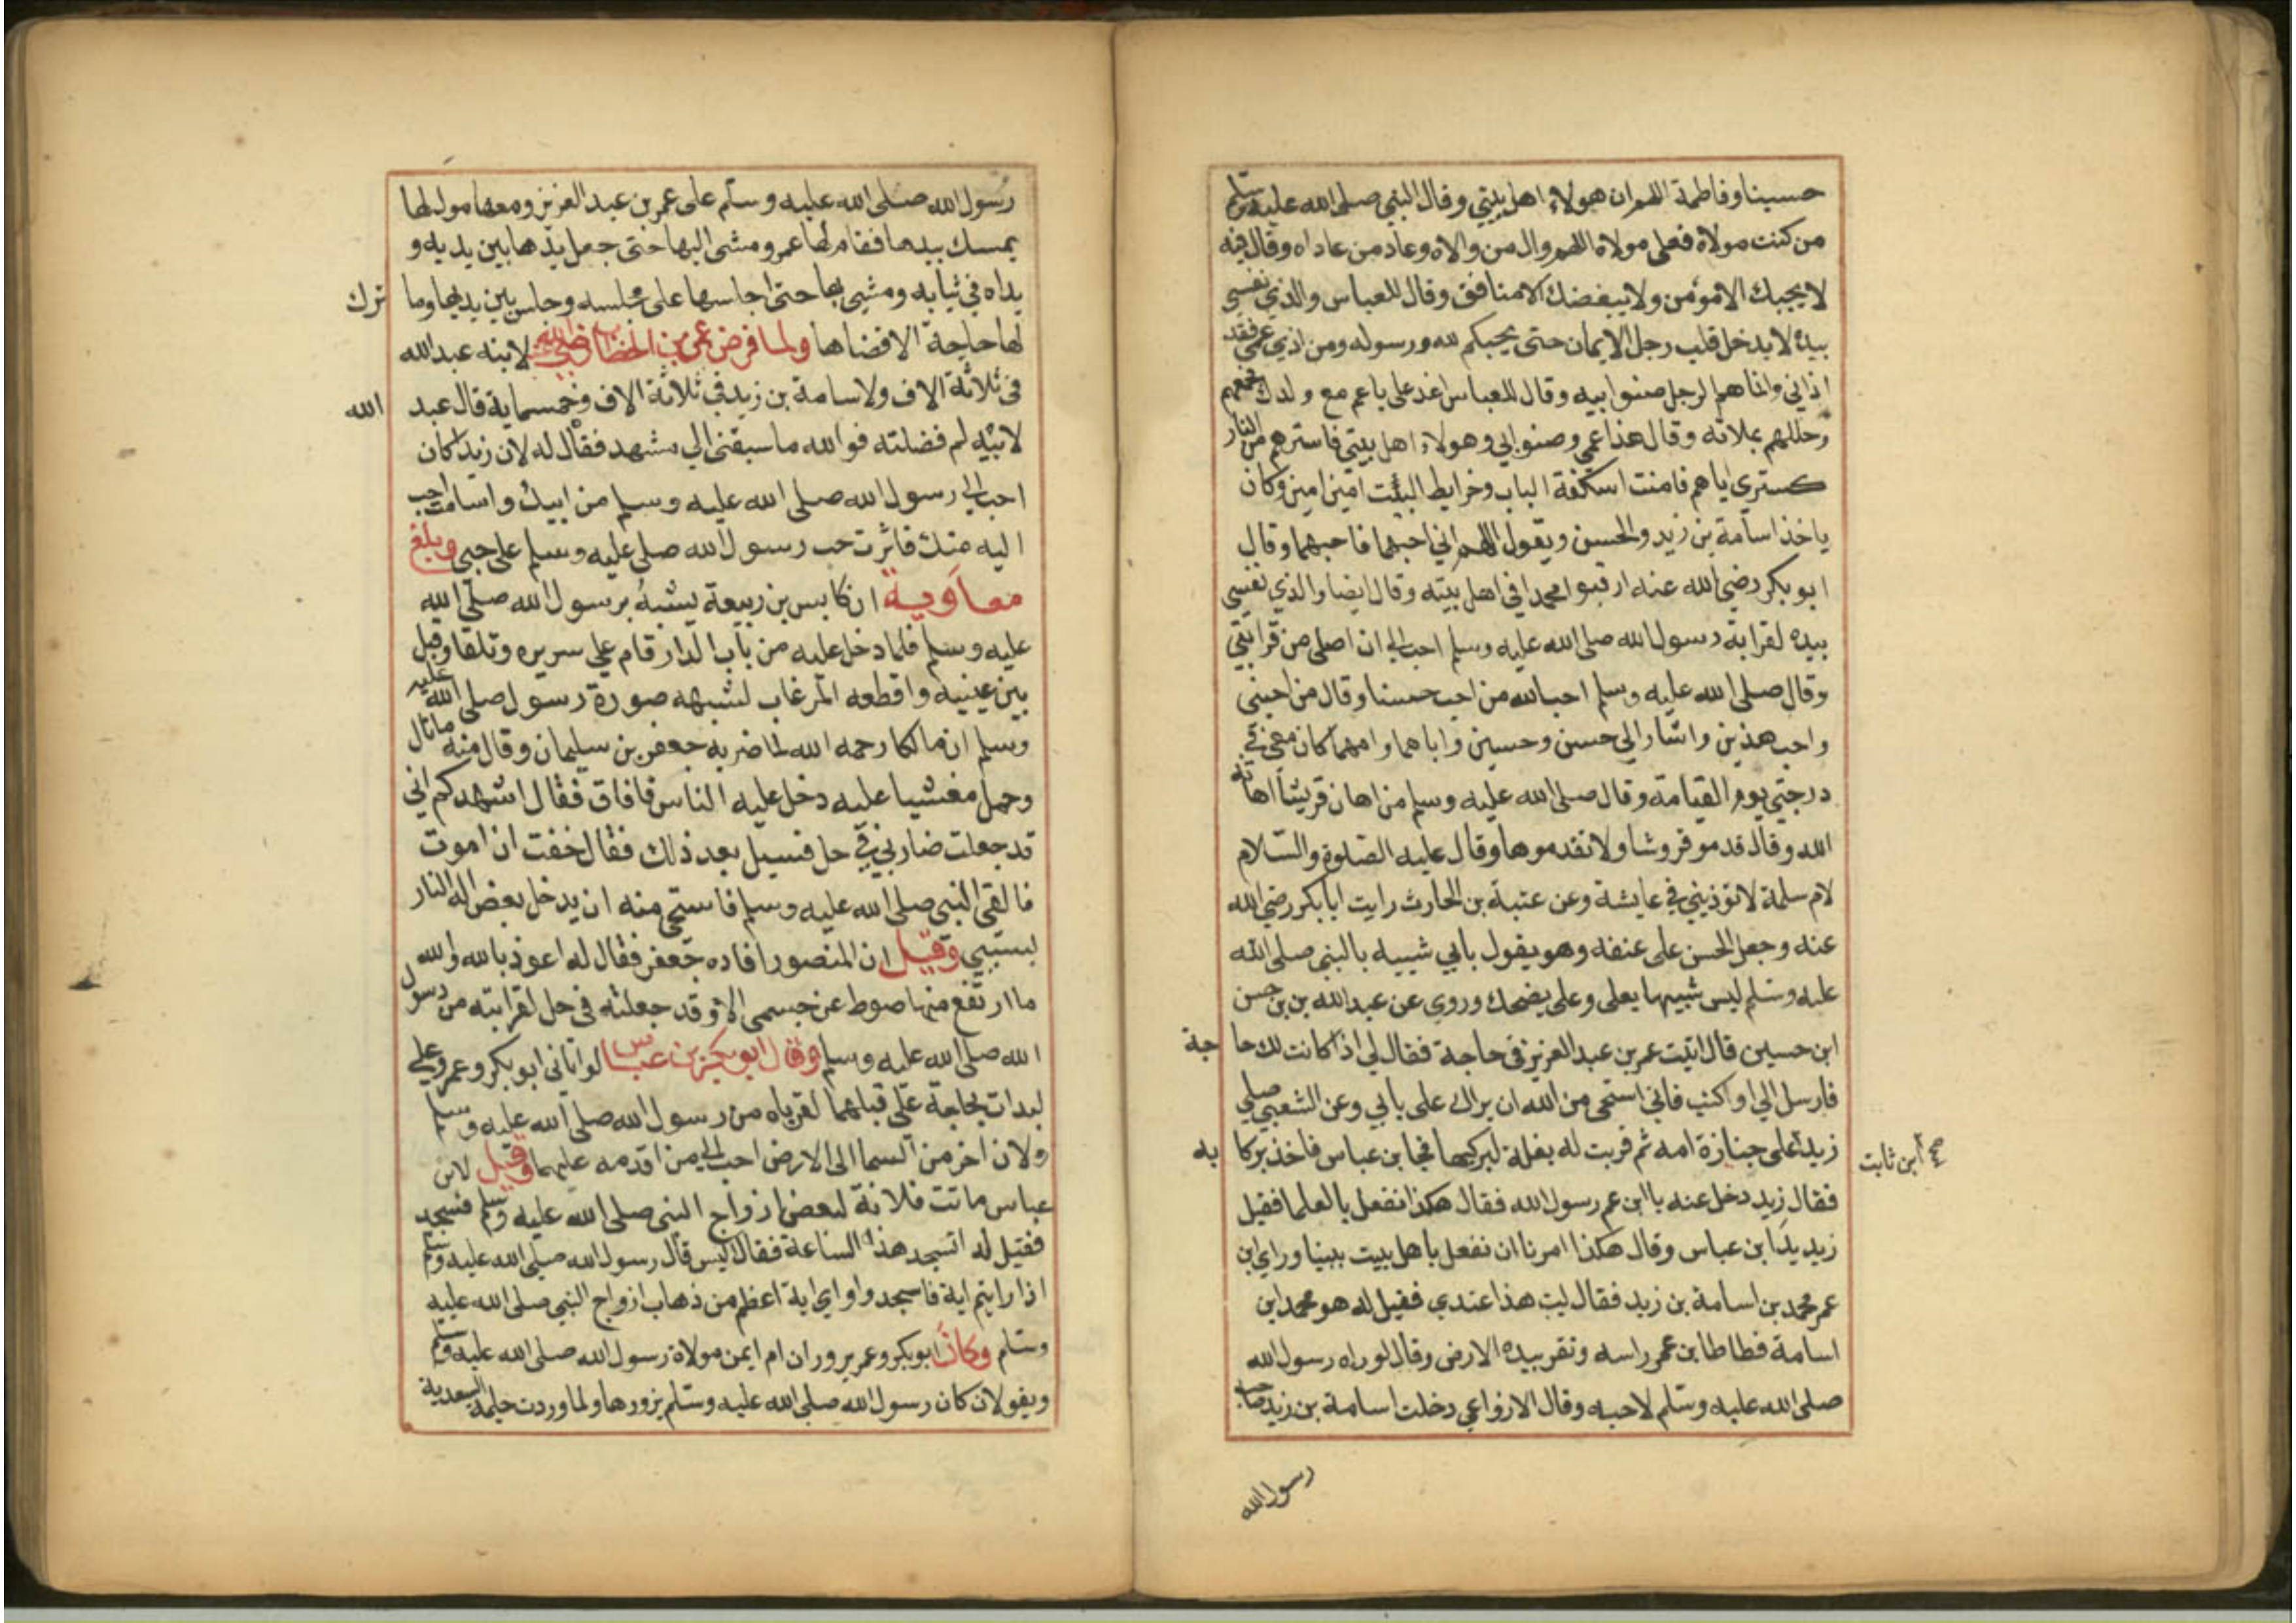 حسينا وفاطمة اللهم ان هولاء اهل بيتي وقال النبي صلى الله عليه وسلم
من كنت مولاه فعلي مولاه اللهم وال من والاه وعاد من عاداه وقال فيه
لا يحبك الا مومن ولا يبغضك الا منافق وقال للعباس والذي نفسي
بيده لا يدخل قلب رجل الايمان حتى يحبكم لله ورسوله ومن اذي عمي فقد
اذاني وانما عم الرجل صنو ابيه وقال للعباس اغد علي يا عم مع ولدك فجمعهم
وجللهم بملاته وقال هذا عمي وصنو ابي وهولاء اهل بيتي فاسترهم من النار
كستري اياهم فامنت اسكفة الباب وخرايط البيت امين امين وكان
ياخذ اسامة بن زيد والحسن ويقول اللهم اني احبهما فاحبهما وقال
ابو بكر رضي الله عنه ارقبوا محمدا في اهل بيته وقال ايضا والذي نفسي
بيده لقرابة رسول الله صلى الله عليه وسلم احب الي ان اصل من قرابتي
وقال صلى الله عليه وسلم احب الله من احب حسنا وقال من احبني
واحب هذين واشار الي حسن وحسين واباهما وامهما كان معي في
درجتي يوم القيامة وقال صلى الله عليه وسلم من اهان قريشا اهانه
الله وقال قدموا قروشا ولا تقدموها وقال عليه الصلوة والسلام
لام سلمة لا توذيني في عايشة وعن عتبة بن الحارث رايت ابا بكر رضي الله
عنه وجعل الحسن على عنقه وهو يقول بابي شبيه بالنبي صلى الله
عليه وسلم ليس شبيها بعلي وعلي يضحك وروي عن عبد الله بن بن حسن
ابن حسين قال اتيت عمر بن عبد العزيز في حاجة فقال لي اذا كانت لك حا جة
فارسل الي او اكتب فاني استحي من الله ان يراك على بابي وعن الشعبي صلي
زيد على جنازة امه ثم قربت له بغلة ليركبها فجا ابن عباس فاخذ بركا به
صح ابن ثابت
فقال زيد دخل عنه يا ابن عم رسول الله فقال هكذا نفعل بالعلما فقبل
زيد يد ابن عباس وقال هكذا امرنا ان نفعل باهل بيت نبينا وراي ابن
عمر محمد بن اسامة بن زيد فقال ليت هذا عندي فقيل له هو محمد ابن
اسامة فطاطا ابن عمر راسه ونقر بيده الارض وقال لو راه رسول الله
صلى الله عليه وسلم لاحبه وقال الاوزاعي دخلت اسامة بن زيد صاحب
رسول الله
رسول الله صلى الله عليه وسلم على عمر بن عبد العزيز ومعها مولى لها
يمسك بيدها فقام لها عمر ومشى اليها حتى جعل يدها بين يديه و
يداه في ثيابه ومشي بها حتى اجلسها على مجلسه وجلس بين يديها وما ترك
لها حاجة الا قضاها ولما فرض عمر بن الخطاب رضي الله لابنه عبد الله
في ثلاثة الاف ولاسامة بن زيد في ثلاثة الاف وخمسماية قال عبد الله
لابيه لم فضلته فوالله ما سبقني الي مشهد فقال له لان زيدا كان
احب الى رسول الله صلى الله عليه وسلم من ابيك واسامة احب
اليه منك فاثرت حب رسول الله صلى عليه وسلم على حبي وبلغ
معاوية ان كابس بن ربيعة يشبه برسول الله صلى الله
عليه وسلم فلما دخل عليه من باب الدار قام علي سريره وتلقا وقبل
بين عينيه واقطعه المرغاب لشبهه صورة رسول صلى الله عليه
وسلم ان مالكا رحمه الله لما ضربه جعفر بن سليمان وقال منه ما نال
وحمل مغشيا عليه دخل عليه الناس فافاق فقال اشهدكم اني
قد جعلت ضاربي في حل فسيل بعد ذلك فقال خفت ان اموت
فالقي النبي صلى الله عليه وسلم فاستحي منه ان يدخل بعض اله النار
بسببي وقيل ان المنصور افاده جعفر فقال له اعوذ بالله والله
ما ارتفع منها صوط عن جسمي الا وقد جعلته في حل لقرابته من رسول
الله صلى الله عليه وسلم وقال ابو بكر بن عباس لو اتاني ابو بكر وعمر وعلي
لبدات بحاجة علي قبلهما لقرباه من رسول الله صلى الله عليه وسلم
ولان اخر من السما الى الارض احب الي من اقدمه عليهما وقيل لابن
عباس ماتت فلانة لبعض ازواج النبي صلى الله عليه وسلم فسجد
فقيل له اتسجد هذا الساعة فقال اليس قال رسول الله صلى الله عليه وسلم
اذا رايتم اية فاسجدوا واي اية اعظم من ذهاب ازواج النبي صلى الله عليه
وسلم وكان ابو بكر وعمر يزوران ام ايمن مولاة رسول الله صلى الله عليه وسلم
ويقولان كان رسول الله صلى الله عليه وسلم يزورها ولما وردت حليمة السعدية